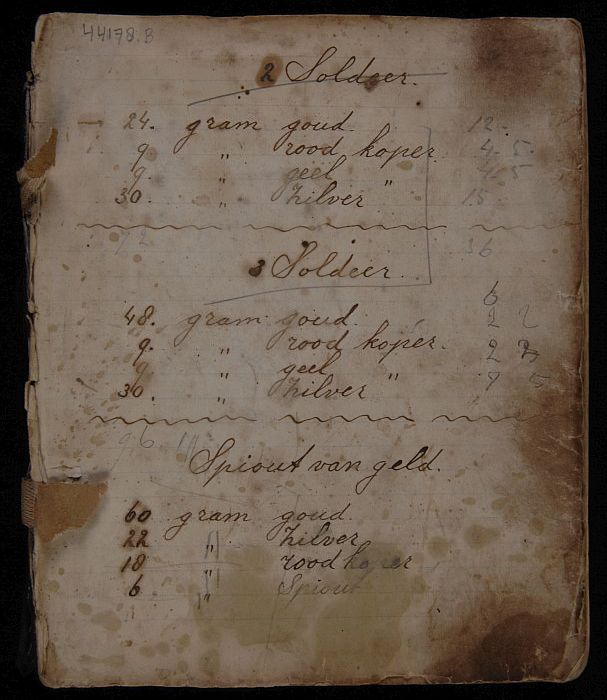 44178.B
2 Soldeer.
24. gram goud. 12.
9 " rood koper. 4. 5.
9 " geel " 4. 5
30. " Zilver 15.
72 36
3 Soldeer.
6
48. gram goud. 2 2
9. " rood koper. 2
9 " geel "
30. " Zilver
96
Spiout van geld.
60 gram goud.
22 " Zilver
18 " rood koper
6 " Spiout